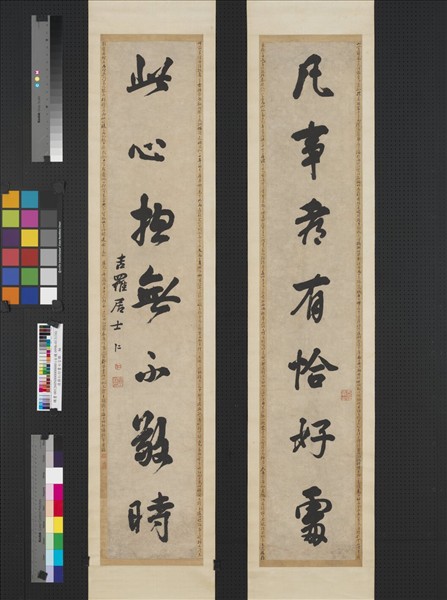 凡事有恰好處
此心無不時
吉羅居士仁